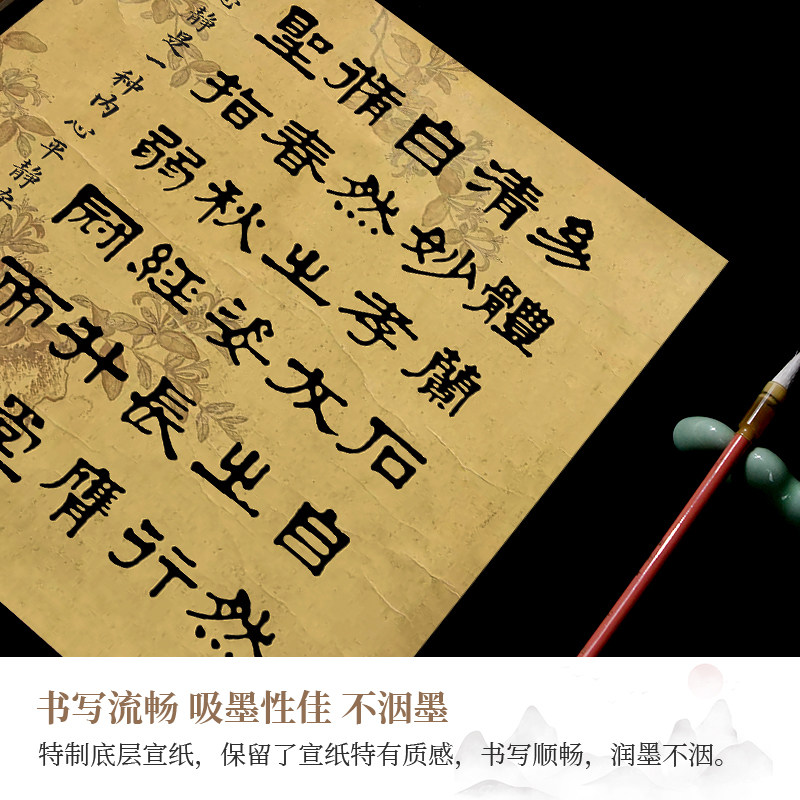 多體蘭石自然
清妙孝友之行
自然之姿長膺
脩春秋經升堂
聖指弱冠而
静是一种内心平静
书写流畅 吸墨性佳 不洇墨
特制底层宣纸，保留了宣纸特有质感，书写顺畅，润墨不洇。